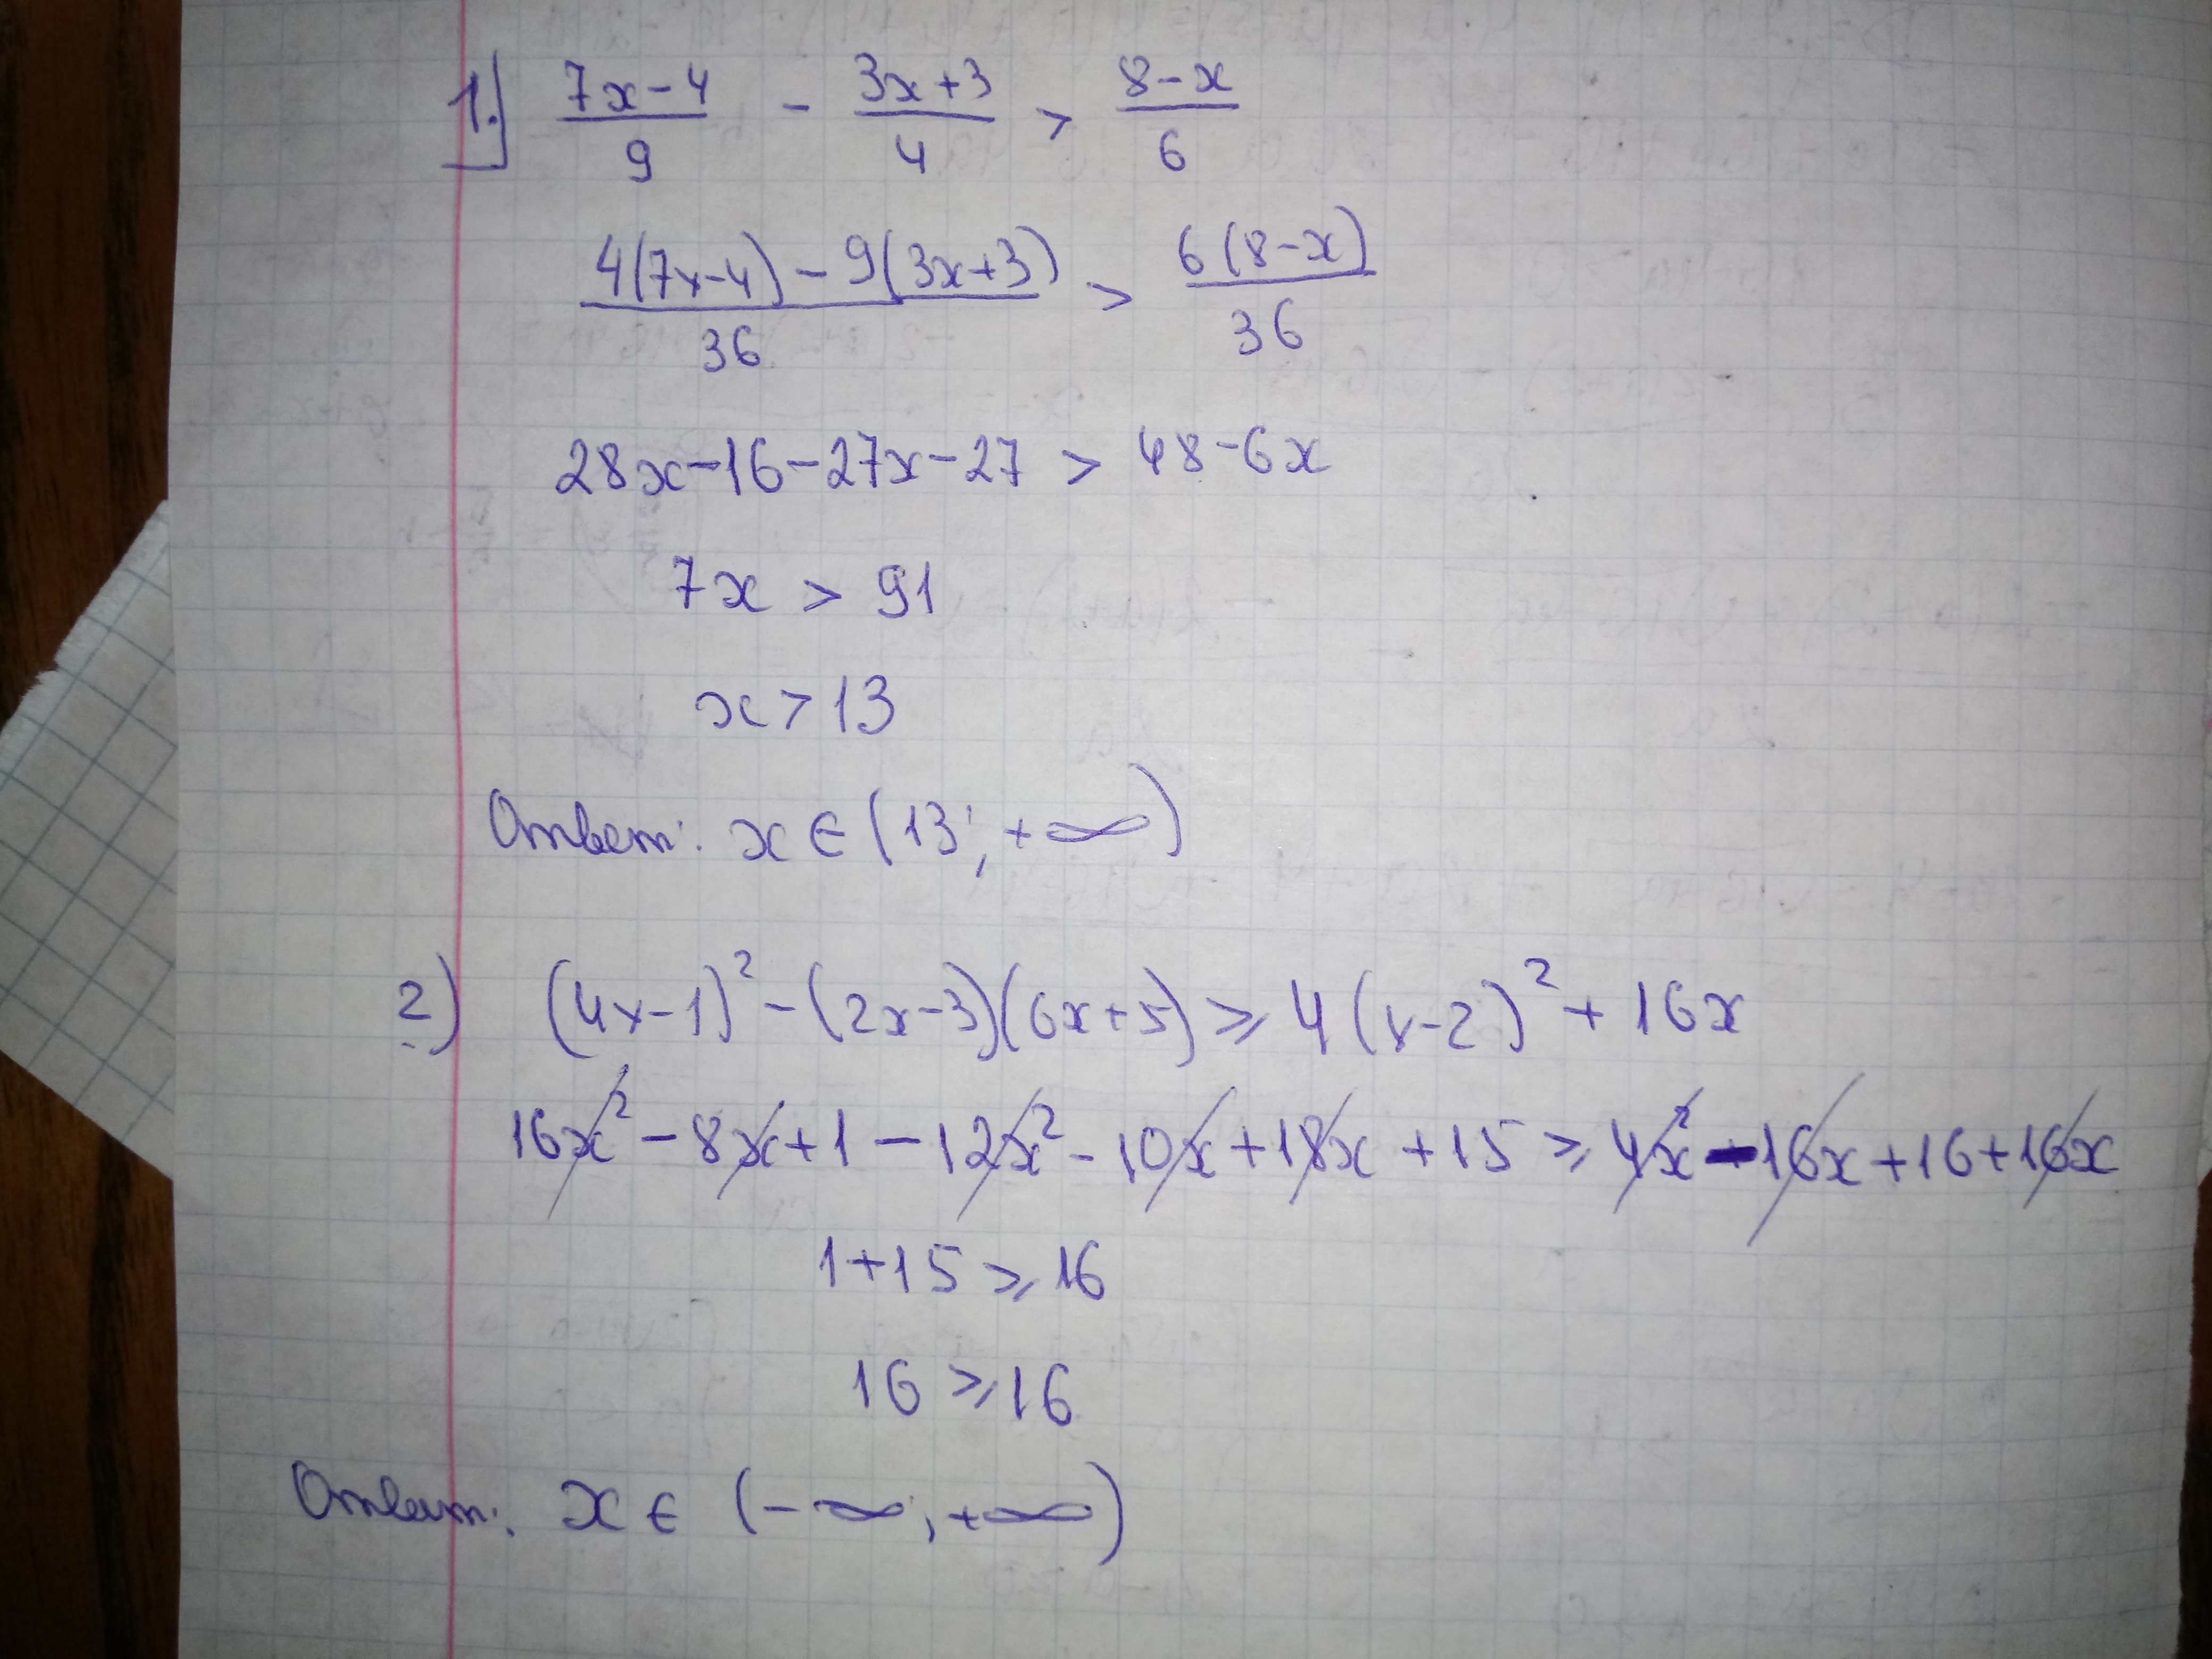 1.] (7x-4)/9 - (3x+3)/4 > (8-x)/6
(4(7x-4) - 9(3x+3))/36 > 6(8-x)/36
28x-16-27x-27 > 48-6x
7x > 91
x > 13
Ответ: x ∈ (13; +∞)
2) (4x-1)² - (2x-3)(6x+5) ⩾ 4(x-2)² + 16x
16x² - 8x + 1 - 12x² - 10x + 18x + 15 ⩾ 4x² - 16x + 16 + 16x
1+15 ⩾ 16
16 ⩾ 16
Ответ: x ∈ (-∞; +∞)